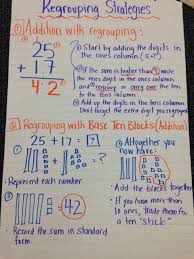 Regrouping Strategies
① Addition with regrouping:
1
25
+ 17
42
① Start by adding the digits in
the ones column (5+7)
② If the sum is higher than 9, write
the ones digit in the ones column
and regroup or carry one the ten
to the tens column.
③ Add up the digits in the tens column.
Don't forget the extra one you regrouped
② Regrouping with Base Ten Blocks (Addition)
① 25 + 17 = ?
• Represent each number
② Altogether you
now have:
• Add the blocks together
• If you have more than
10 ones, trade them for
a ten "stick".
③ = 42
• Record the sum in standard
form.